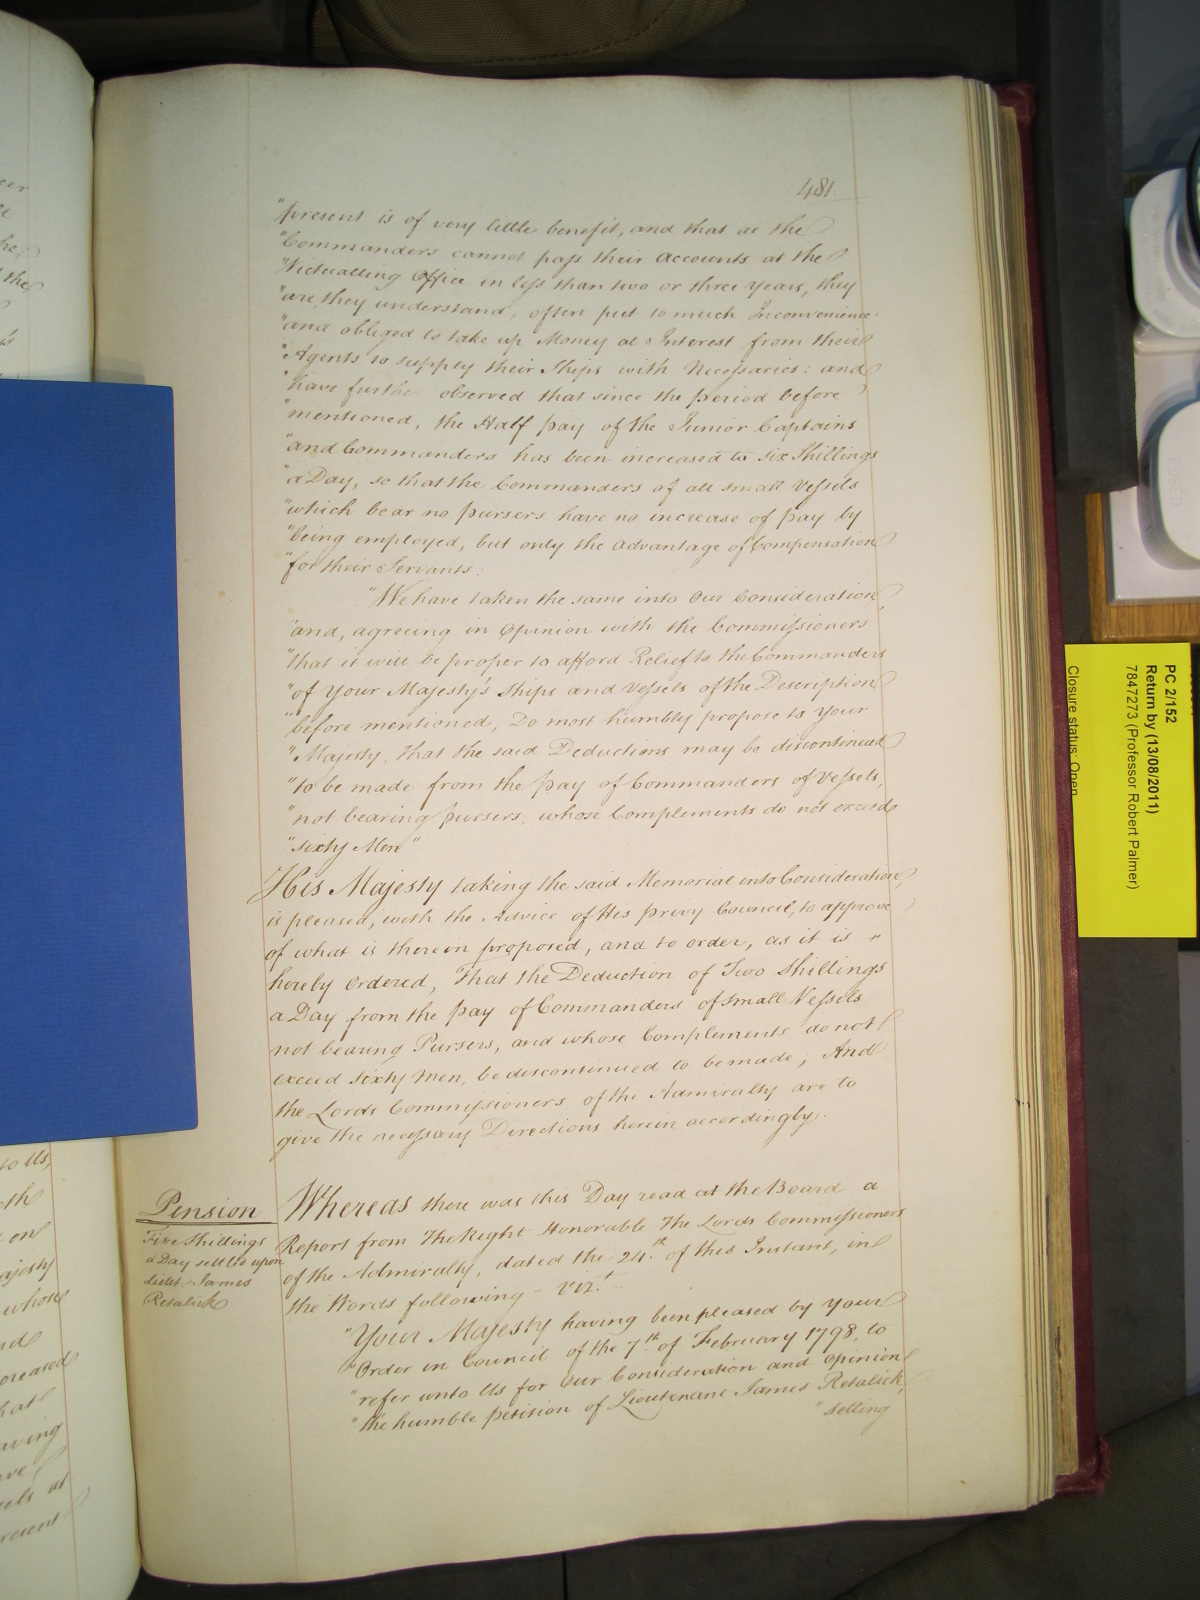 481.
"present is of very little benefit, and that as the
"Commanders cannot pass their Accounts at the
"Victualling Office in less than two or three Years, they
"are, they understand, often put to much Inconvenience
"and obliged to take up Money at Interest from their
"Agents to supply their Ships with Necessaries: and
"have further observed that since the period before
"mentioned, the Half pay of the Junior Captains
"and Commanders has been increased to six Shillings
"a Day, so that the Commanders of all small Vessels
"which bear no pursers have no increase of pay by
"being employed, but only the advantage of Compensation
"for their Servants:
"We have taken the same into Our Consideration,
"and, agreeing in Opinion with the Commissioners
"that it will be proper to afford Relief to the Commanders
"of Your Majesty's Ships and Vessels of the Description
"before mentioned, Do most humbly propose to Your
"Majesty, that the said Deductions may be discontinued
"to be made from the pay of Commanders of Vessels,
"not bearing pursers, whose Complements do not exceed
"sixty Men"
His Majesty taking the said Memorial into Consideration,
is pleased, with the Advice of His privy Council, to approve
of what is therein proposed, and to order, as it is "
hereby Ordered, That the Deduction of Two Shillings
a Day from the pay of Commanders of small Vessels
not bearing Pursers, and whose Complements do not
exceed sixty Men, be discontinued to be made, And
the Lords Commissioners of the Admiralty are to
give the necessary Directions herein accordingly.
Pension
Five Shillings
a Day settled upon
Lieut. James
Retalick
Whereas there was this Day read at the Board a
Report from The Right Honorable The Lords Commissioners
of the Admiralty, dated the 24.th of this Instant, in
the Words following – viz.t
"Your Majesty having been pleased by Your
"Order in Council of the 7.th of February 1798, to
"refer unto Us for our Consideration and Opinion
"the humble petition of Lieutenant James Retalick,
"setting
PC 2/152
Return by (13/08/2011)
7847273 (Professor Robert Palmer)
Closure status: Open
to Us,
-th
on
Majesty
whose
nd
creased
hat
aving
ve
els at
resent